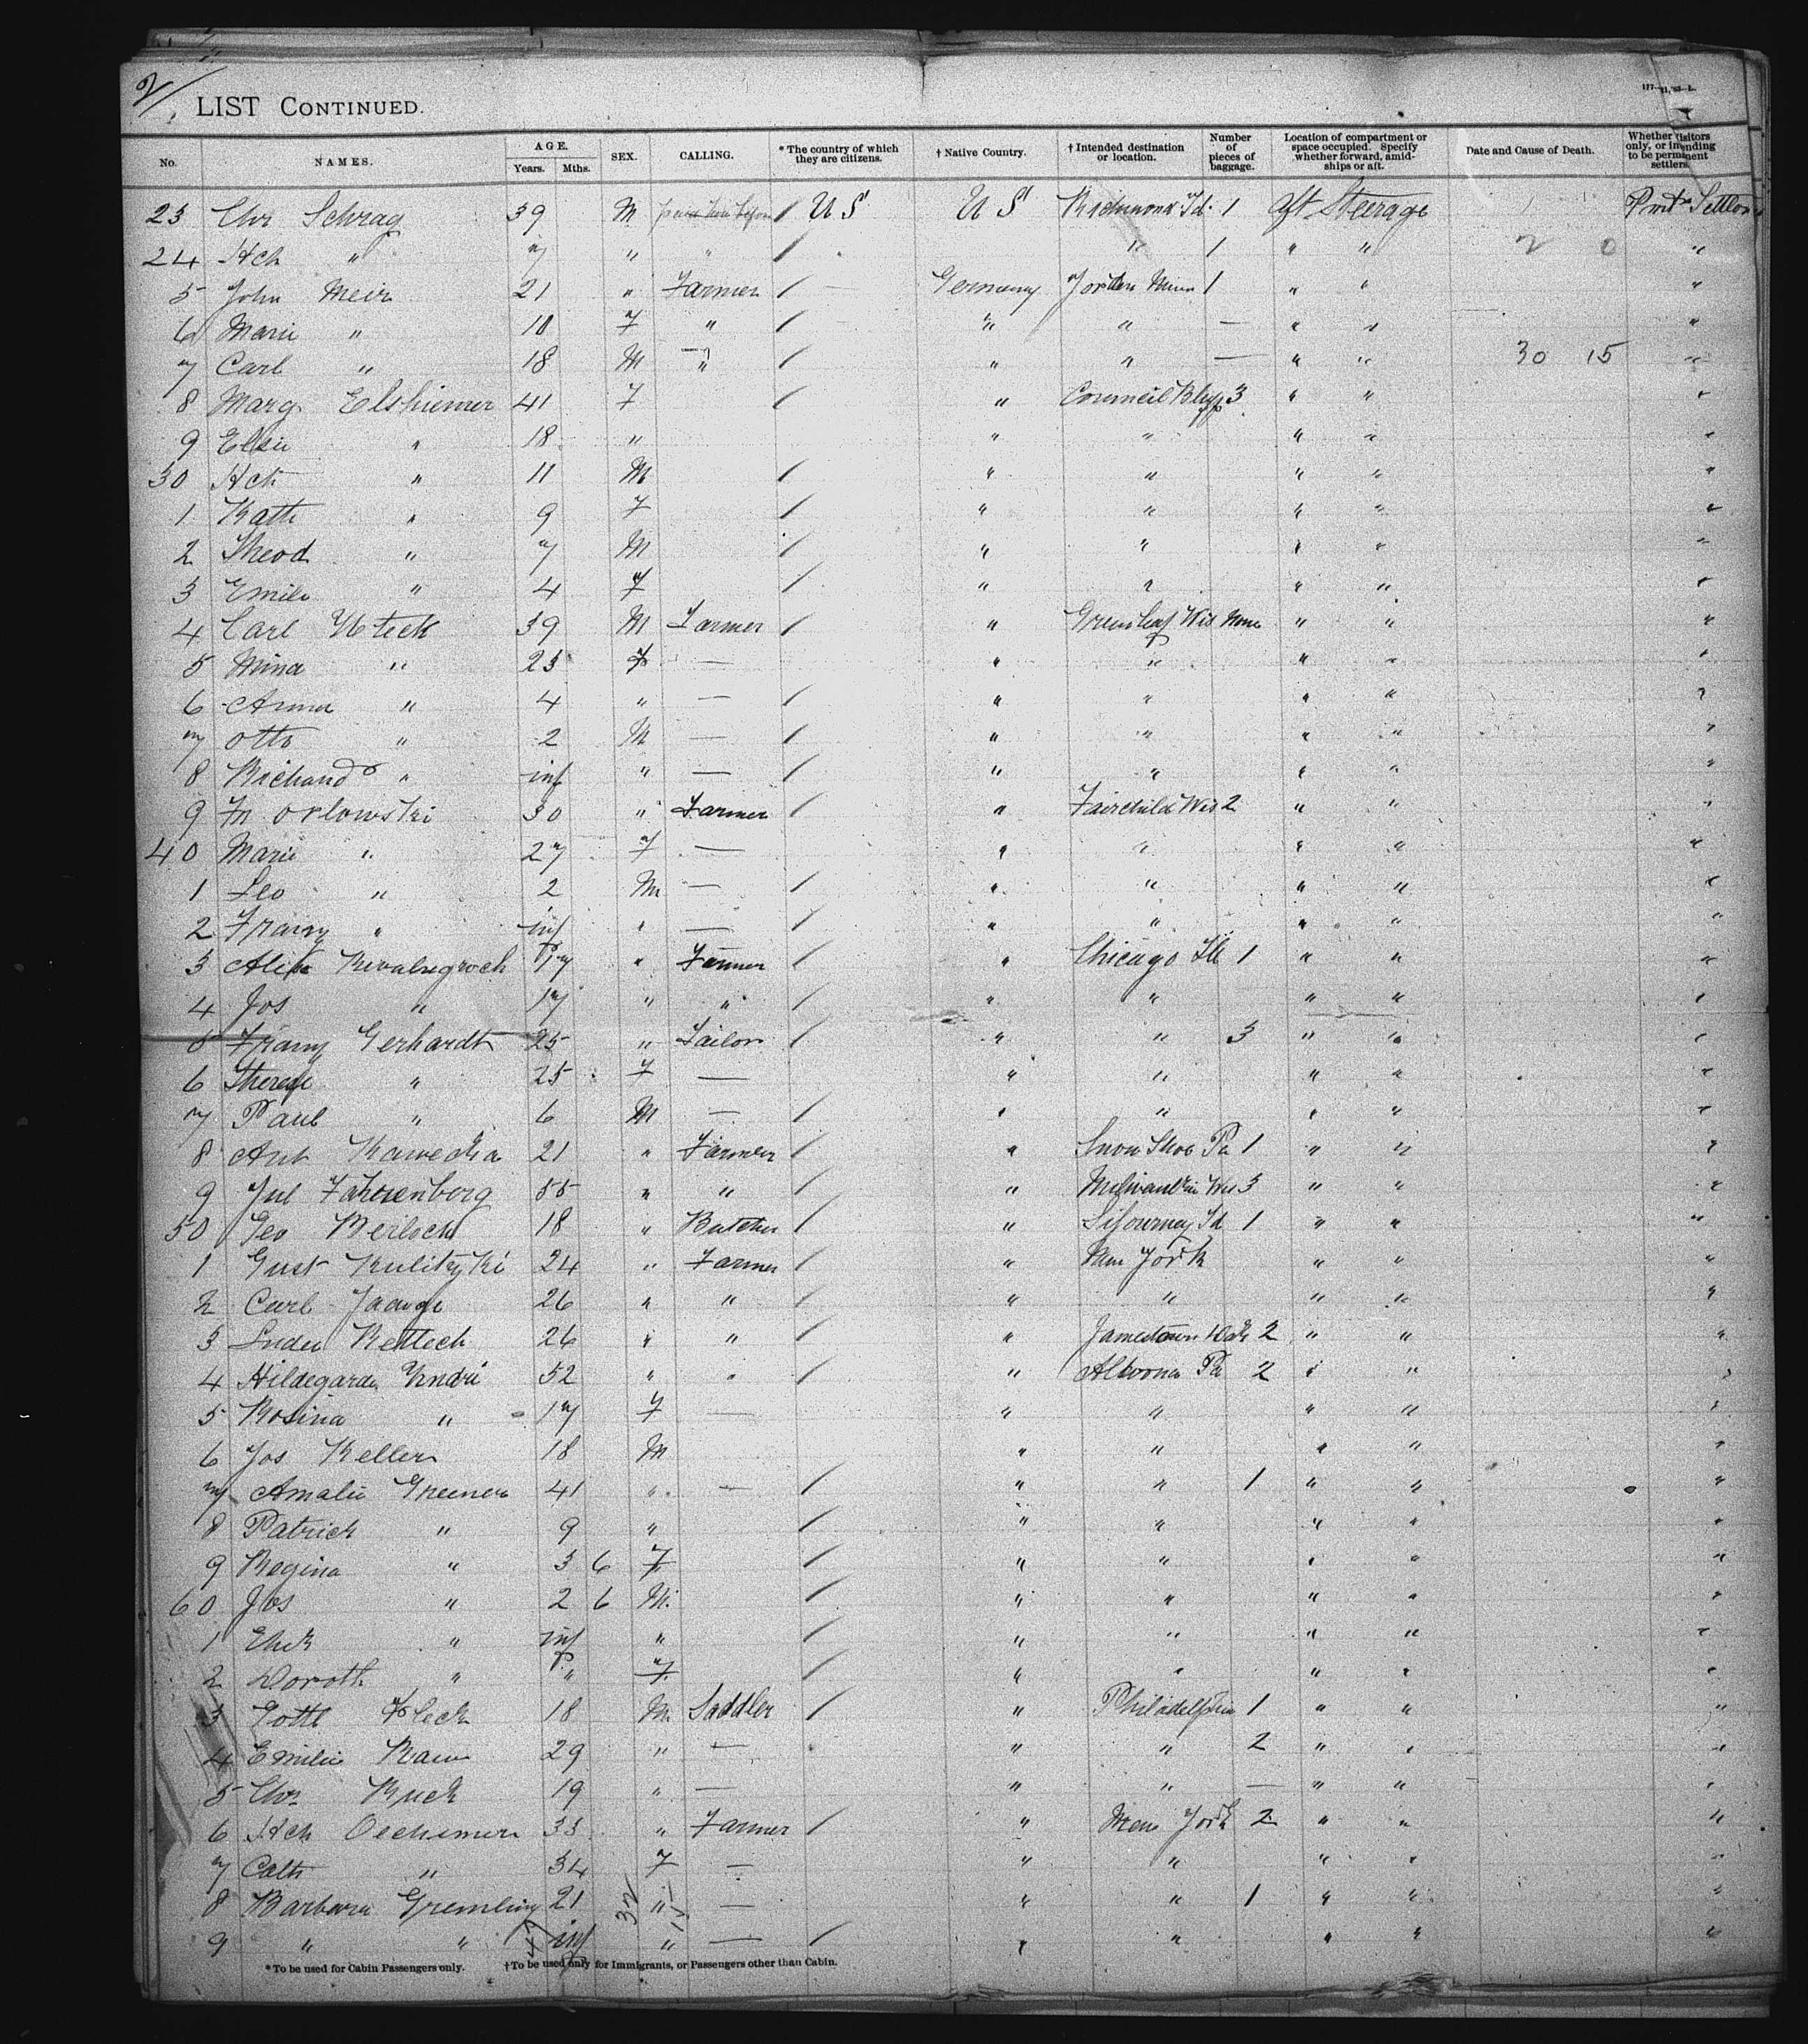 2/.
LIST CONTINUED.
177-11,'83-L.
No. NAMES. AGE. Years. Mths. SEX. CALLING. * The country of which they are citizens. † Native Country. † Intended destination or location. Number of pieces of baggage. Location of compartment or space occupied. Specify whether forward, amidships or aft. Date and Cause of Death. Whether visitors only, or intending to be permanent settlers.
23 Chr Schrag 39 M / U S U S Richmond Id. 1 Aft Steerage Pmt
24 Hch " 7 " " / " 1 " " 2 0 "
5 John Meir 21 " Farmer / Germany Jorden Minn 1 " " "
6 Marie " 18 F " / " " — " " "
7 Carl " 18 M " / " " — " " 30 15 "
8 Marg Elshiemer 41 F / " Council Bluff 3 " " "
9 Elsie " 18 " " " " " "
30 Hch " 11 M / " " " " "
1 Kath " 9 F / " " " " "
2 Theod " 7 M / " " " " "
3 Emile " 4 F / " " " " "
4 Carl 39 M Farmer / " Greenleaf Wis None " " "
5 Mina " 23 F — " " " " "
6 Anna " 4 " — / " " " " "
7 Otto " 2 M — / " " " " "
8 Richand " inf " — / " " " " "
9 Fr Orlowski 30 " Farmer / " Fairchild Wis 2 " " "
40 Marie " 27 F — " " " " "
1 Leo " 2 M — / " " " " "
2 Franz " inf " — / " " " " "
3 17 " Farmer / " Chicago Ill 1 " " "
4 Jos " 17 " " / " " " " "
5 Franz Gerhardt 25 " Tailor / " " 3 " " "
6 Therese " 25 F — " " " " "
7 Paul " 6 M — / " " " " "
8 Ant 21 " Farmer / " Snow Shoe Pa 1 " " "
9 Jul Fahrenberg 55 " " / " Milwaukie Wis 3 " " "
50 Geo 18 " Butcher / " Sigourney Id 1 " " "
1 Gust Kulitzki 24 " Farmer / " New York " " "
2 Carl 26 " " / " " " " "
3 26 " " " Jamestown Dak 2 " " "
4 Hildegarde Yndri 52 " " / " Altoona Pa 2 " " "
5 Rosina " 17 F — " " " " "
6 Jos Keller 18 M " " " " "
7 Amalie Greener 41 " — / " " 1 " " "
8 Patrick " 9 " / " " " " "
9 Regina " 3 6 F / " " " " "
60 Jos " 2 6 M. / " " " " "
1 " inf " / " " " " "
2 Doroth " " F / " " " " "
3 Gottl Fleck 18 M. Saddler / " Philadelphia 1 " " "
4 Emilie Rau 29 " — " " 2 " " "
5 Chr Ruck 19 " — " " — " " "
6 Hch Oechsmer 33 " Farmer / " New York 2 " " "
7 Cath " 34 F — " " " " "
8 Barbara Gremling 21 " — " " 1 " " "
9 " " inf " — / " " " " "
47 32 15
* To be used for Cabin Passengers only. † To be used only for Immigrants, or Passengers other than Cabin.